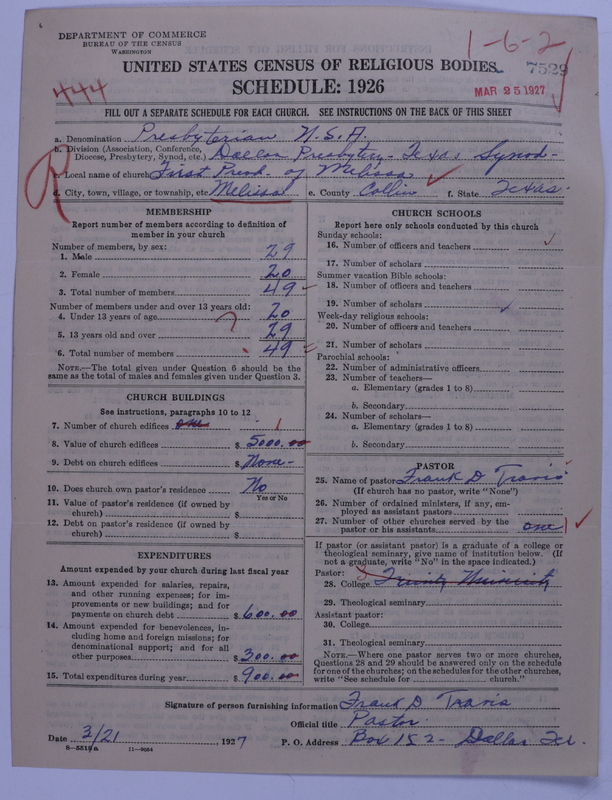 DEPARTMENT OF COMMERCE
BUREAU OF THE CENSUS
WASHINGTON
1-6-2
7529
UNITED STATES CENSUS OF RELIGIOUS BODIES
MAR 25 1927
444
SCHEDULE: 1926
FILL OUT A SEPARATE SCHEDULE FOR EACH CHURCH. SEE INSTRUCTIONS ON THE BACK OF THIS SHEET
a. Denomination Presbyterian U.S.A.
b. Division (Association, Conference, Diocese, Presbytery, Synod, etc.) Dallas Presbytery - Texas Synod -
c. Local name of church First Presb. of Melissa
d. City, town, village, or township, etc. Melissa e. County Collin f. State Texas.
MEMBERSHIP
Report number of members according to definition of
member in your church
Number of members, by sex:
1. Male 29
2. Female 20
3. Total number of members 49
Number of members under and over 13 years old:
4. Under 13 years of age ? 20
5. 13 years old and over 29
6. Total number of members 49
NOTE.—The total given under Question 6 should be
same as the total of males and females given under Question 3.
CHURCH BUILDINGS
See instructions, paragraphs 10 to 12
7. Number of church edifices one 1
8. Value of church edifices $ 5000.00
9. Debt on church edifices $ None -
10. Does church own pastor's residence No
Yes or No
11. Value of pastor's residence (if owned by
church) $
12. Debt on pastor's residence (if owned by
church) $
EXPENDITURES
Amount expended by your church during last fiscal year
13. Amount expended for salaries, repairs,
and other running expenses; for im-
provements or new buildings; and for
payments on church debt $ 600.00
14. Amount expended for benevolences, in-
cluding home and foreign missions; for
denominational support; and for all
other purposes $ 300.00
15. Total expenditures during year $ 900.00
CHURCH SCHOOLS
Report here only schools conducted by this church
Sunday schools:
16. Number of officers and teachers
17. Number of scholars
Summer vacation Bible schools:
18. Number of officers and teachers
19. Number of scholars
Week-day religious schools:
20. Number of officers and teachers
21. Number of scholars
Parochial schools:
22. Number of administrative officers
23. Number of teachers—
a. Elementary (grades 1 to 8)
b. Secondary
24. Number of scholars—
a. Elementary (grades 1 to 8)
b. Secondary
PASTOR
25. Name of pastor Frank D Travis
(If church has no pastor, write "None")
26. Number of ordained ministers, if any, em-
ployed as assistant pastors
27. Number of other churches served by the
pastor or his assistants one 1
If pastor (or assistant pastor) is a graduate of a college or
theological seminary, give name of institution below. (If
not a graduate, write "No" in the space indicated.)
Pastor:
28. College Trinity
29. Theological seminary
Assistant pastor:
30. College
31. Theological seminary
NOTE.—Where one pastor serves two or more churches,
Questions 28 and 29 should be answered only on the schedule
for one of the churches; on the schedules for the other churches,
write "See schedule for church."
Signature of person furnishing information Frank D Travis
Official title Pastor.
Date 3/21 1927 P. O. Address Box 152 - Dallas Tex.
11-9054